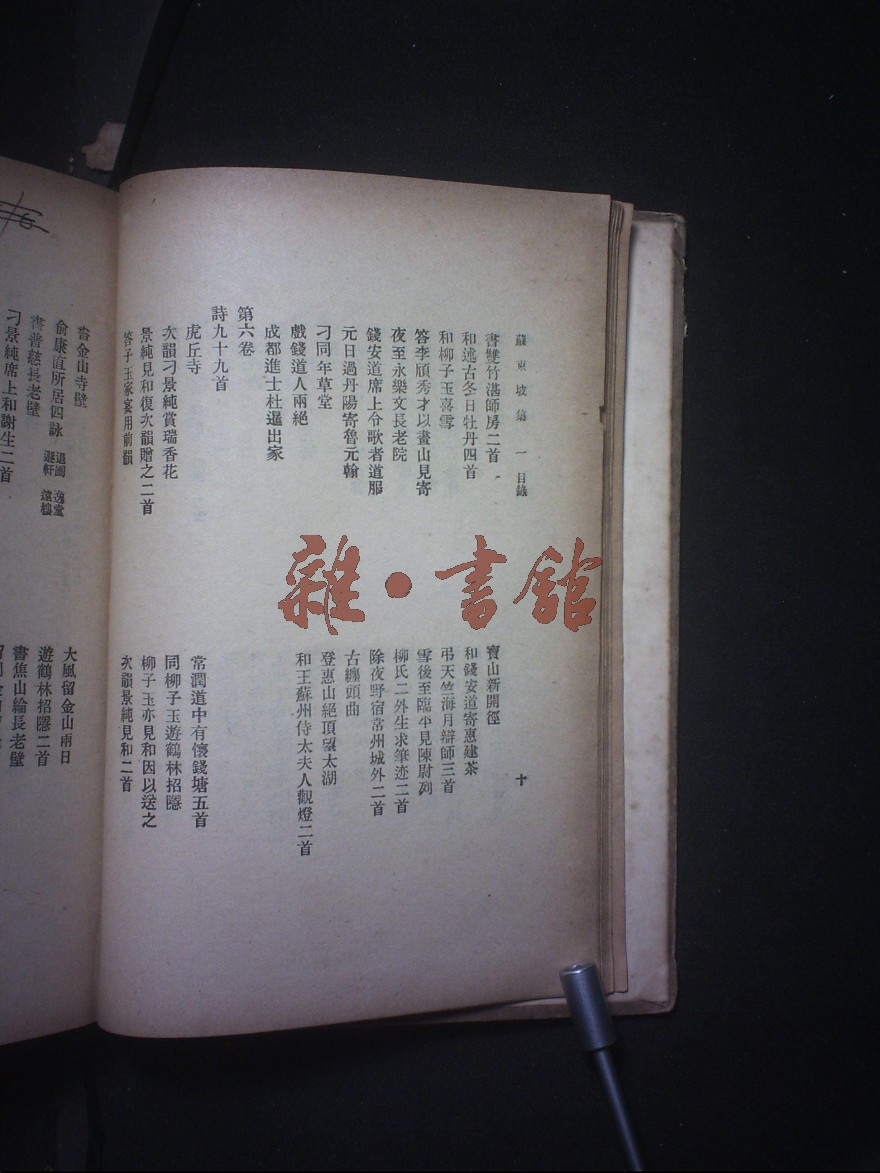 蘇東坡集 一 目錄 十
書雙竹湛師房二首 寶山新開徑
和述古冬日牡丹四首 和錢安道寄惠建茶
和柳子玉喜雪 弔天竺海月辯師三首
答李頎秀才以畫山見寄 雪後至臨平見陳尉列
夜至永樂文長老院 柳氏二外生求筆迹二首
錢安道席上令歌者道服 除夜野宿常州城外二首
元日過丹陽寄魯元翰 古纏頭曲
刁同年草堂 登惠山絕頂望太湖
戲錢道人兩絕 和王蘇州侍太夫人觀燈二首
成都進士杜暹出家
第六卷
詩九十九首
虎丘寺 常潤道中有懷錢塘五首
次韻刁景純賞瑞香花 同柳子玉遊鶴林招隱
景純見和復次韻贈之二首 柳子玉亦見和因以送之
答子玉家宴用前韻 次韻景純見和二首
書金山寺壁 大風留金山兩日
俞康直所居四詠 退圃 逸堂 遯軒 遠樓 遊鶴林招隱二首
書普慈長老壁 書焦山綸長老壁
刁景純席上和謝生二首
雜·書館